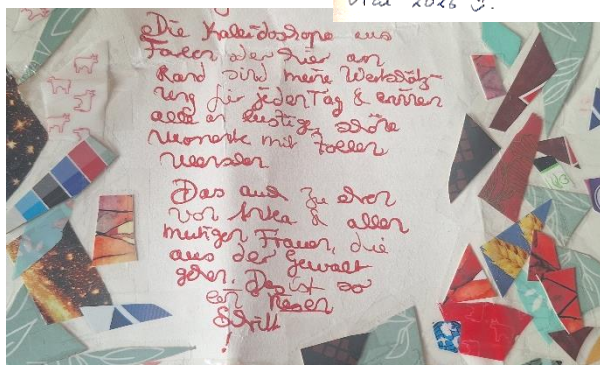 Mai 2026 :).
Die Kaleidoskope aus
Farben oder hier am
Rand sind meine Wertschätz-
ung für jeden Tag & erinnern
alle an lustige, schöne
Momente mit tollen
Menschen
Das auch zu ehren
von Anka & allen
mutigen Frauen, die
aus der Gewalt
gehen. Das ist so
ein riesen
Schritt
!